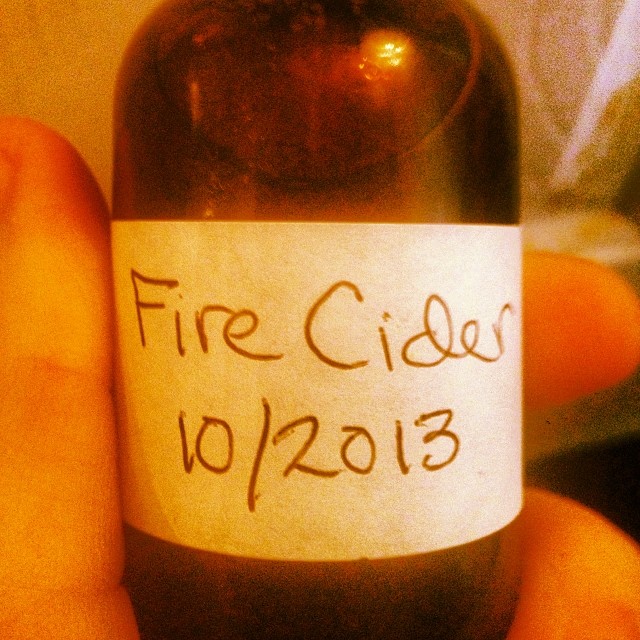 Fire Cider
10/2013